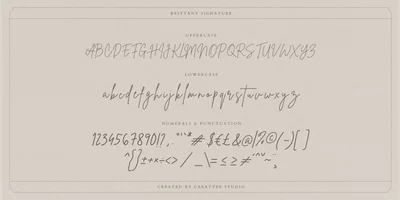 BRITTENY SIGNATURE
UPPERCASE
ABCDEFGHIJKLMNOPQRSTUVWXYZ
LOWERCASE
abcdefghijklmnopqrstuvwxyz
NUMERALS & PUNCTUATION
CREATED BY CREATYPE STUDIO